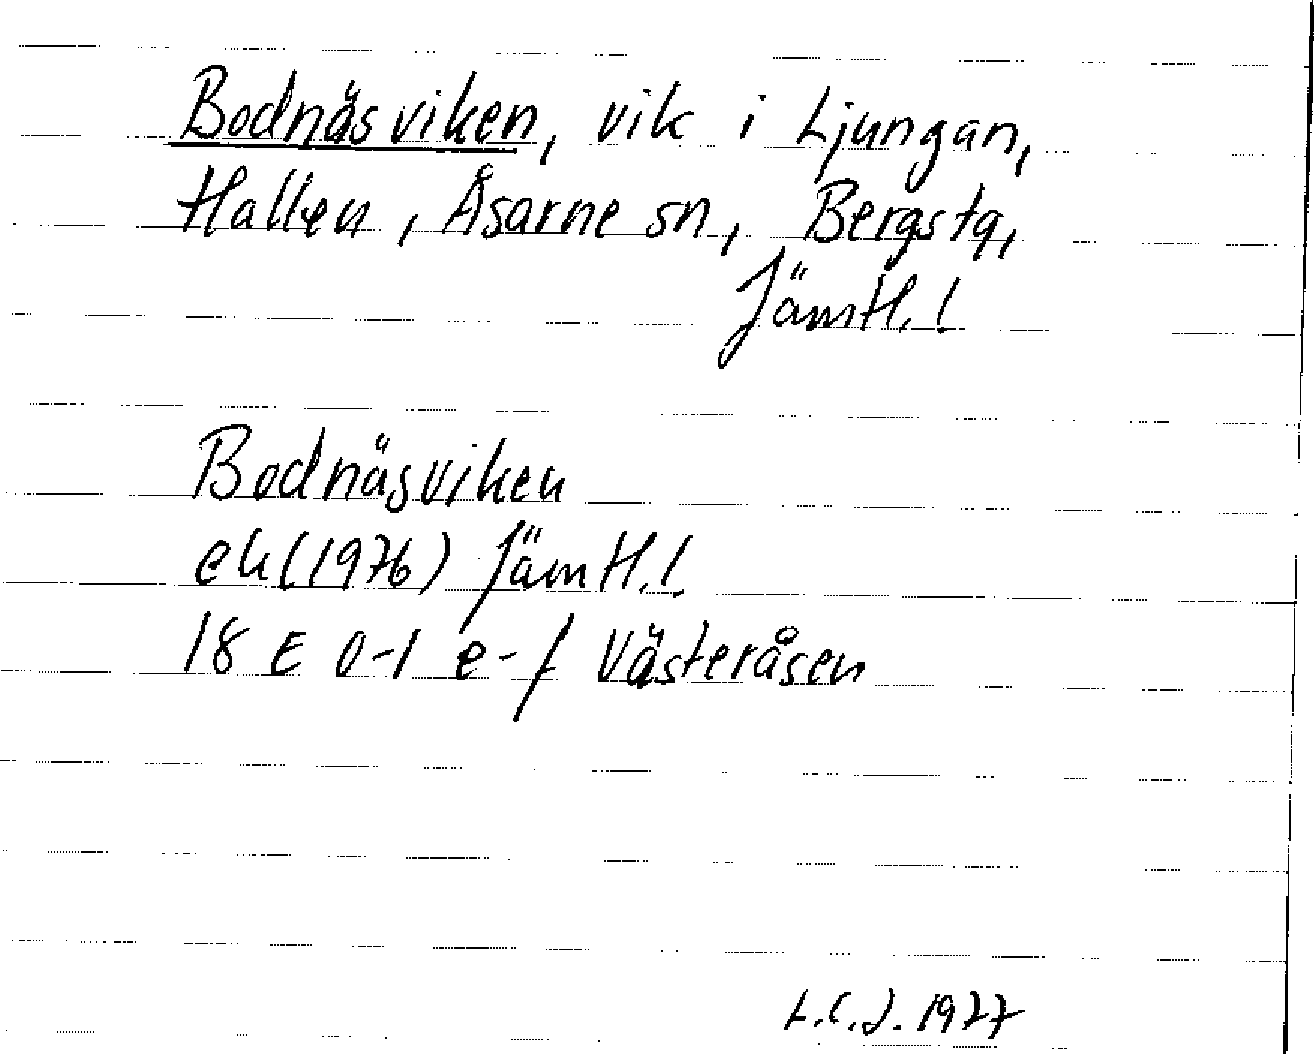 Bodnäsviken, vik i Ljungan,
Hallen, Åsarne sn, Bergs tg,
Jämtl. l
Bodnäsviken
ek (1976) Jämtl. l.
18 E 0-1 e-f Västeråsen
L.C.J. 1977